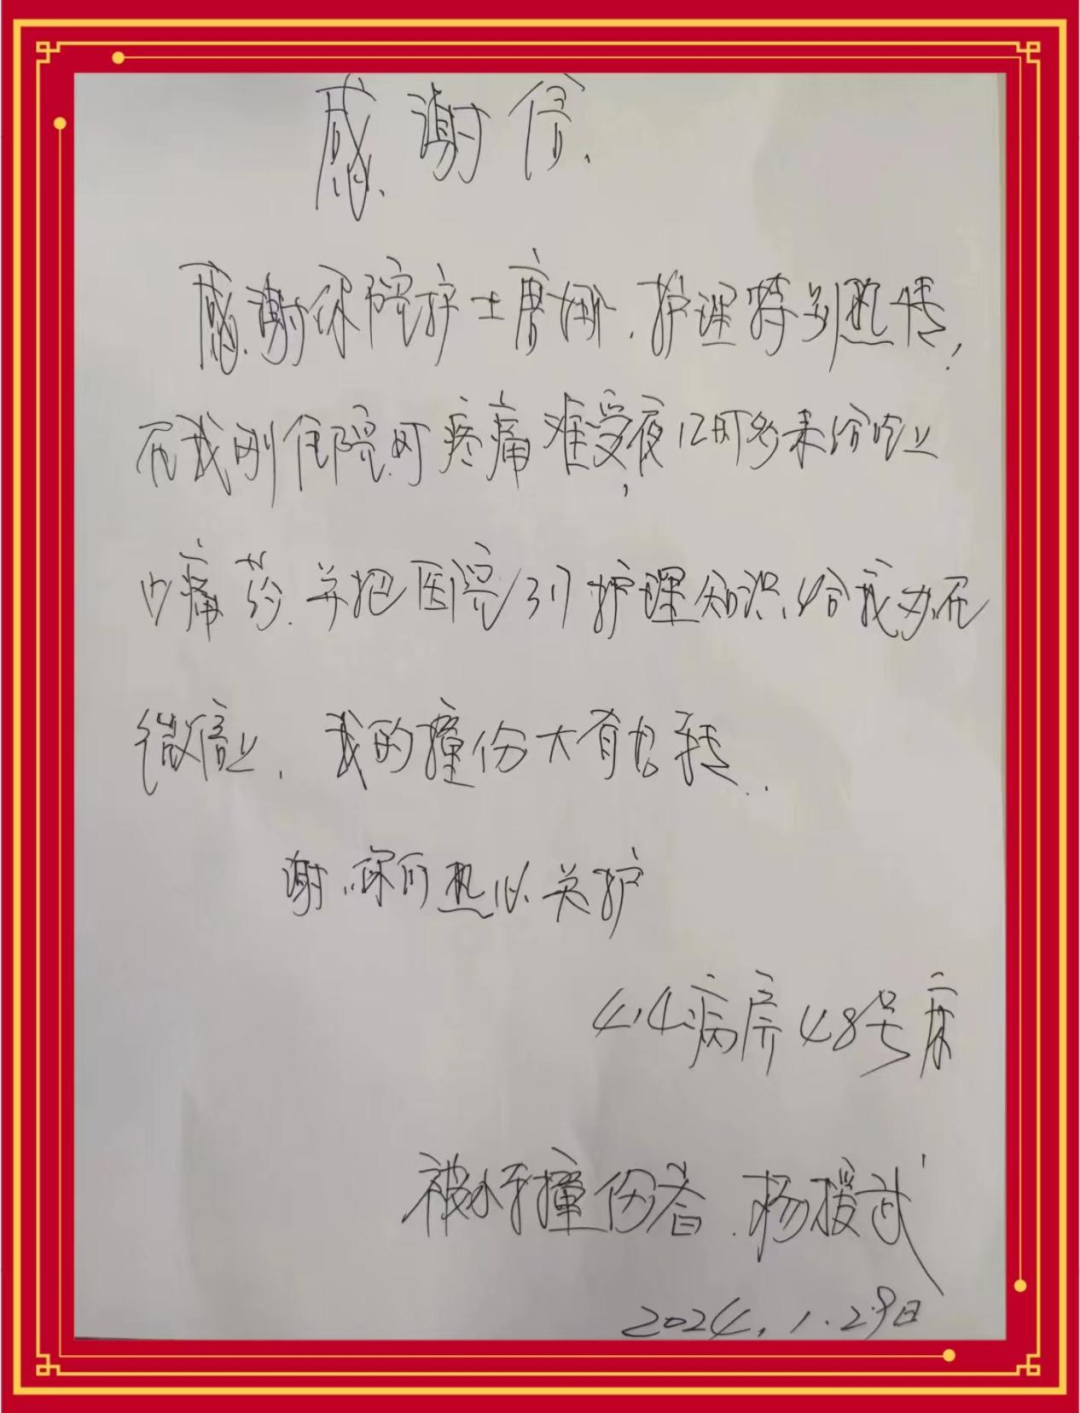 感谢信
感谢你院护士唐娜,护理特别热情,
在我刚住院时疼痛难受,夜12时多来给吃上
止痛药.并把医院门护理知识,给我办在
微信上,我的撞伤大有好转..
谢.你们热心关护
414病房48号床
被水车撞伤者.杨援武
2024.1.29日